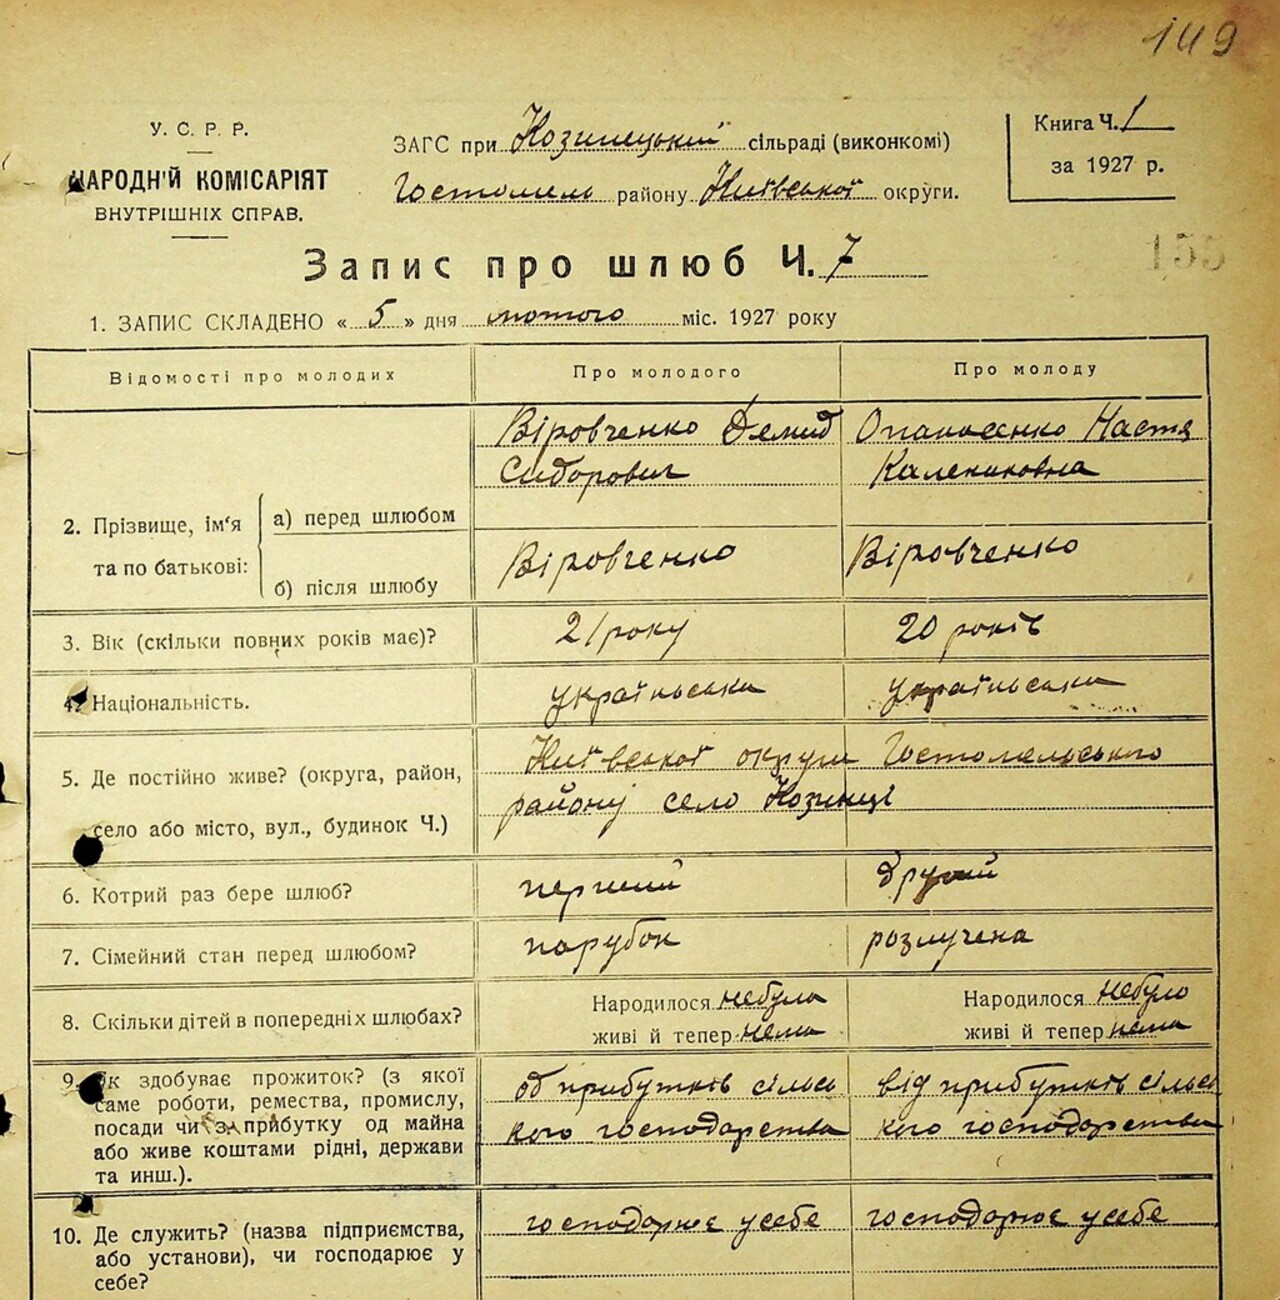 149
У. С. Р. Р.
НАРОДНІЙ КОМІСАРІЯТ
ВНУТРІШНІХ СПРАВ.
ЗАГС при Козинецький сільраді (виконкомі)
Гостомель району Київської округи.
Книга Ч. 1
за 1927 р.
155
Запис про шлюб Ч. 7
1. ЗАПИС СКЛАДЕНО « 5 » дня лютого міс. 1927 року
Відомості про молодих Про молодого Про молоду
Віровченко Демид Опанасенко Настя
Сидорович Калениковна
2. Прізвище, ім'я та по батькові: а) перед шлюбом
б) після шлюбу Віровченко Віровченко
3. Вік (скільки повних років має)? 21 року 20 років
4. Національність. українська українська
5. Де постійно живе? (округа, район, Київської округи Гостомельського
село або місто, вул., будинок Ч.) району село Козинці
6. Котрий раз бере шлюб? перший другий
7. Сімейний стан перед шлюбом? парубок розлучена
8. Скільки дітей в попередніх шлюбах? Народилося небуло Народилося небуло
живі й тепер нема живі й тепер нема
9. Як здобуває прожиток? (з якої од прибутків сільсь від прибутків сільсь
саме роботи, ремества, промислу,
посади чи з прибутку од майна кого господарства кого господарства
або живе коштами рідні, держави
та инш.).
10. Де служить? (назва підприємства, господарює у себе господарює у себе
або установи), чи господарює у
себе?